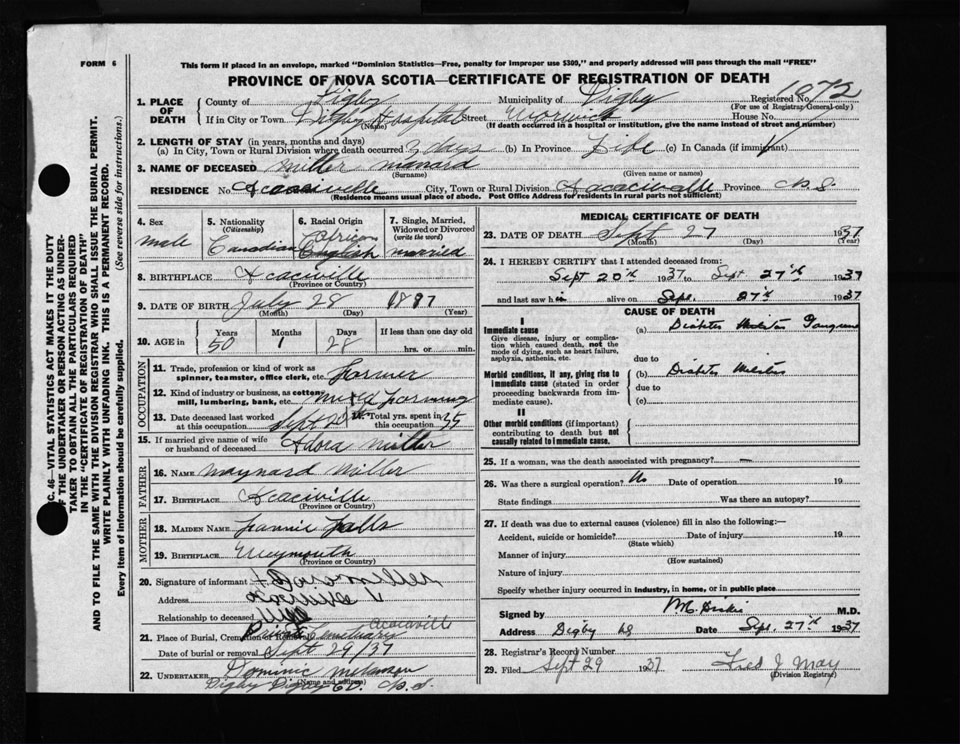 FORM 6
This form if placed in an envelope, marked "Dominion Statistics—Free, penalty for improper use $300," and properly addressed will pass through the mail "FREE"
PROVINCE OF NOVA SCOTIA—CERTIFICATE OF REGISTRATION OF DEATH
1. PLACE OF DEATH County of Digby Municipality of Digby Registered No. 1072
(For use of Registrar General only)
If in City or Town Digby Hospital Street Warwick House No.
(Name) (If death occurred in a hospital or institution, give the name instead of street and number)
2. LENGTH OF STAY (in years, months and days)
(a) In City, Town or Rural Division where death occurred days (b) In Province Life (c) In Canada (if immigrant)
3. NAME OF DECEASED Miller
(Surname) (Given name or names)
RESIDENCE No. Acaciville City, Town or Rural Division Province N.S.
(Residence means usual place of abode. Post Office Address for residents in rural parts not sufficient)
4. Sex male
5. Nationality (Citizenship) Canadian
6. Racial Origin African English
7. Single, Married, Widowed or Divorced (write the word) married
8. BIRTHPLACE Acaciville
(Province or Country)
9. DATE OF BIRTH July 28 1887
(Month) (Day) (Year)
10. AGE in Years 50 Months 1 Days 28 If less than one day old hrs. or min.
OCCUPATION
11. Trade, profession or kind of work as spinner, teamster, office clerk, etc. Farmer
12. Kind of industry or business, as cotton mill, lumbering, bank, etc. mixed farming
13. Date deceased last worked at this occupation Sept Total yrs. spent in this occupation 35
15. If married give name of wife or husband of deceased Miller
FATHER
16. NAME Maynard Miller
17. BIRTHPLACE Acaciville
(Province or Country)
MOTHER
18. MAIDEN NAME Fannie
19. BIRTHPLACE Weymouth
(Province or Country)
20. Signature of informant Miller
Address
Relationship to deceased Wife
21. Place of Burial, Cremation or Removal Acaciville
Date of burial or removal Sept 29/37
22. UNDERTAKER Dominic
Digby Digby Co. N.S.
(Name and address)
MEDICAL CERTIFICATE OF DEATH
23. DATE OF DEATH Sept 27 1937
(Month) (Day) (Year)
24. I HEREBY CERTIFY that I attended deceased from:
Sept 20th 1937 to Sept 27th 1937
and last saw him alive on Sept. 27th 1937
CAUSE OF DEATH
I
Immediate cause
Give disease, injury or complication which caused death, not the mode of dying, such as heart failure, asphyxia, asthenia, etc.
(a) Diabetes Gangrene
due to
Morbid conditions, if any, giving rise to immediate cause (stated in order proceeding backwards from immediate cause).
(b) Diabetes
due to
(c)
II
Other morbid conditions (if important) contributing to death but not causally related to immediate cause.
25. If a woman, was the death associated with pregnancy? —
26. Was there a surgical operation? No Date of operation 19
State findings Was there an autopsy?
27. If death was due to external causes (violence) fill in also the following:—
Accident, suicide or homicide? Date of injury 19
(State which)
Manner of injury
(How sustained)
Nature of injury
Specify whether injury occurred in industry, in home, or in public place
Signed by M.D.
Address Digby NS Date Sept. 27th 1937
28. Registrar's Record Number
29. Filed Sept 29 1937 Fred J May
(Division Registrar)
C. 46—VITAL STATISTICS ACT MAKES IT THE DUTY
OF THE UNDERTAKER OR PERSON ACTING AS UNDER-
TAKER TO OBTAIN ALL THE PARTICULARS REQUIRED
IN THE "CERTIFICATE OF REGISTRATION OF DEATH"
AND TO FILE THE SAME WITH THE DIVISION REGISTRAR WHO SHALL ISSUE THE BURIAL PERMIT.
WRITE PLAINLY WITH UNFADING INK. THIS IS A PERMANENT RECORD.
Every item of information should be carefully supplied. (See reverse side for instructions.)